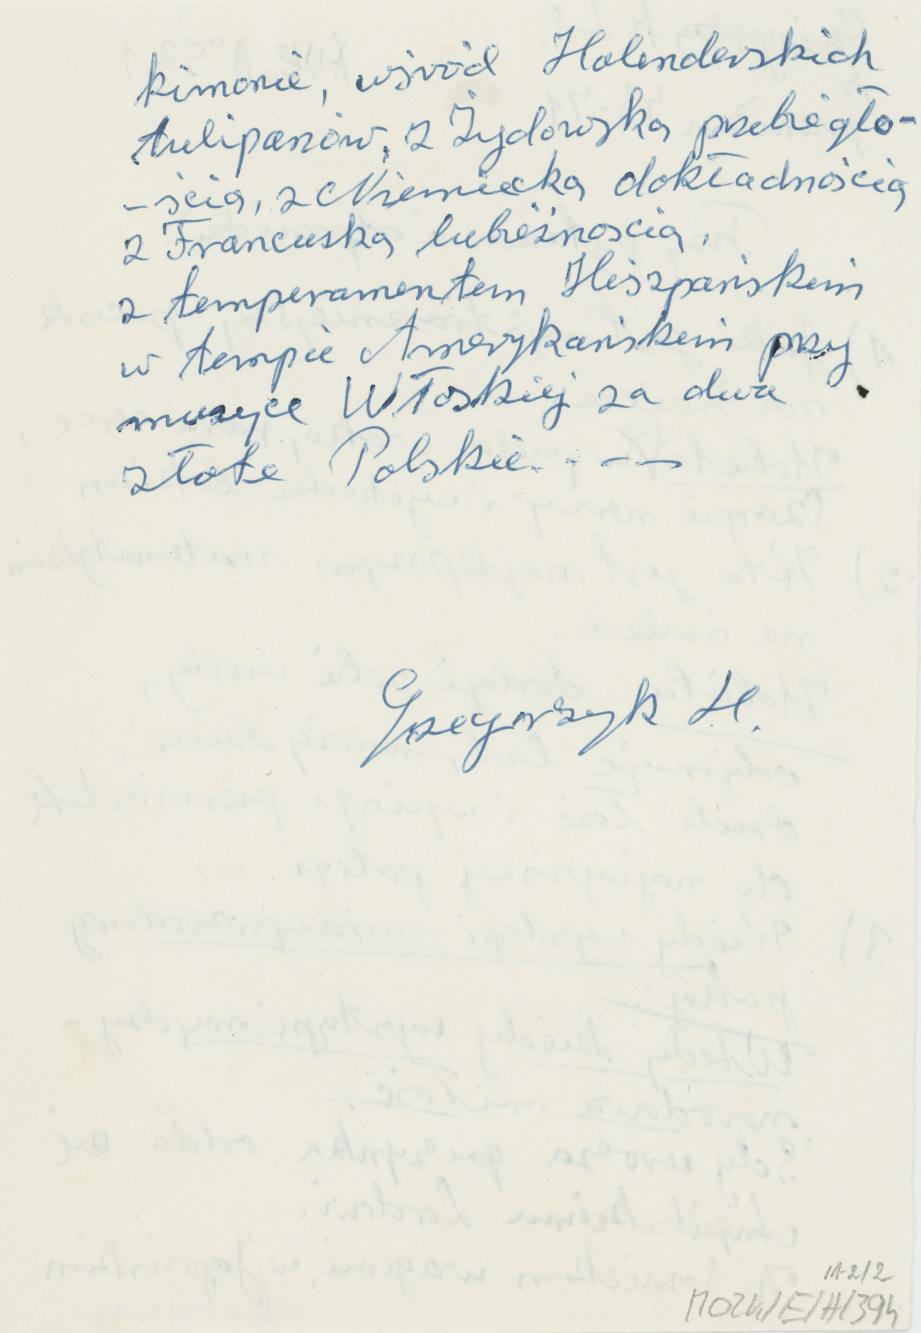 kimonie, wśród Holenderskich
tulipanów, z Żydowską przebiegło-
-ścią, z Niemiecką dokładnością
z Francuską lubieżnoscią,
z temperamentem Hiszpańskim
w tempie Amerykańskim przy
muzyce Włoskiej za dwa
złote Polskie. . — —
Grzegorzyk H.
11-2/2
MOZK/E/H/394